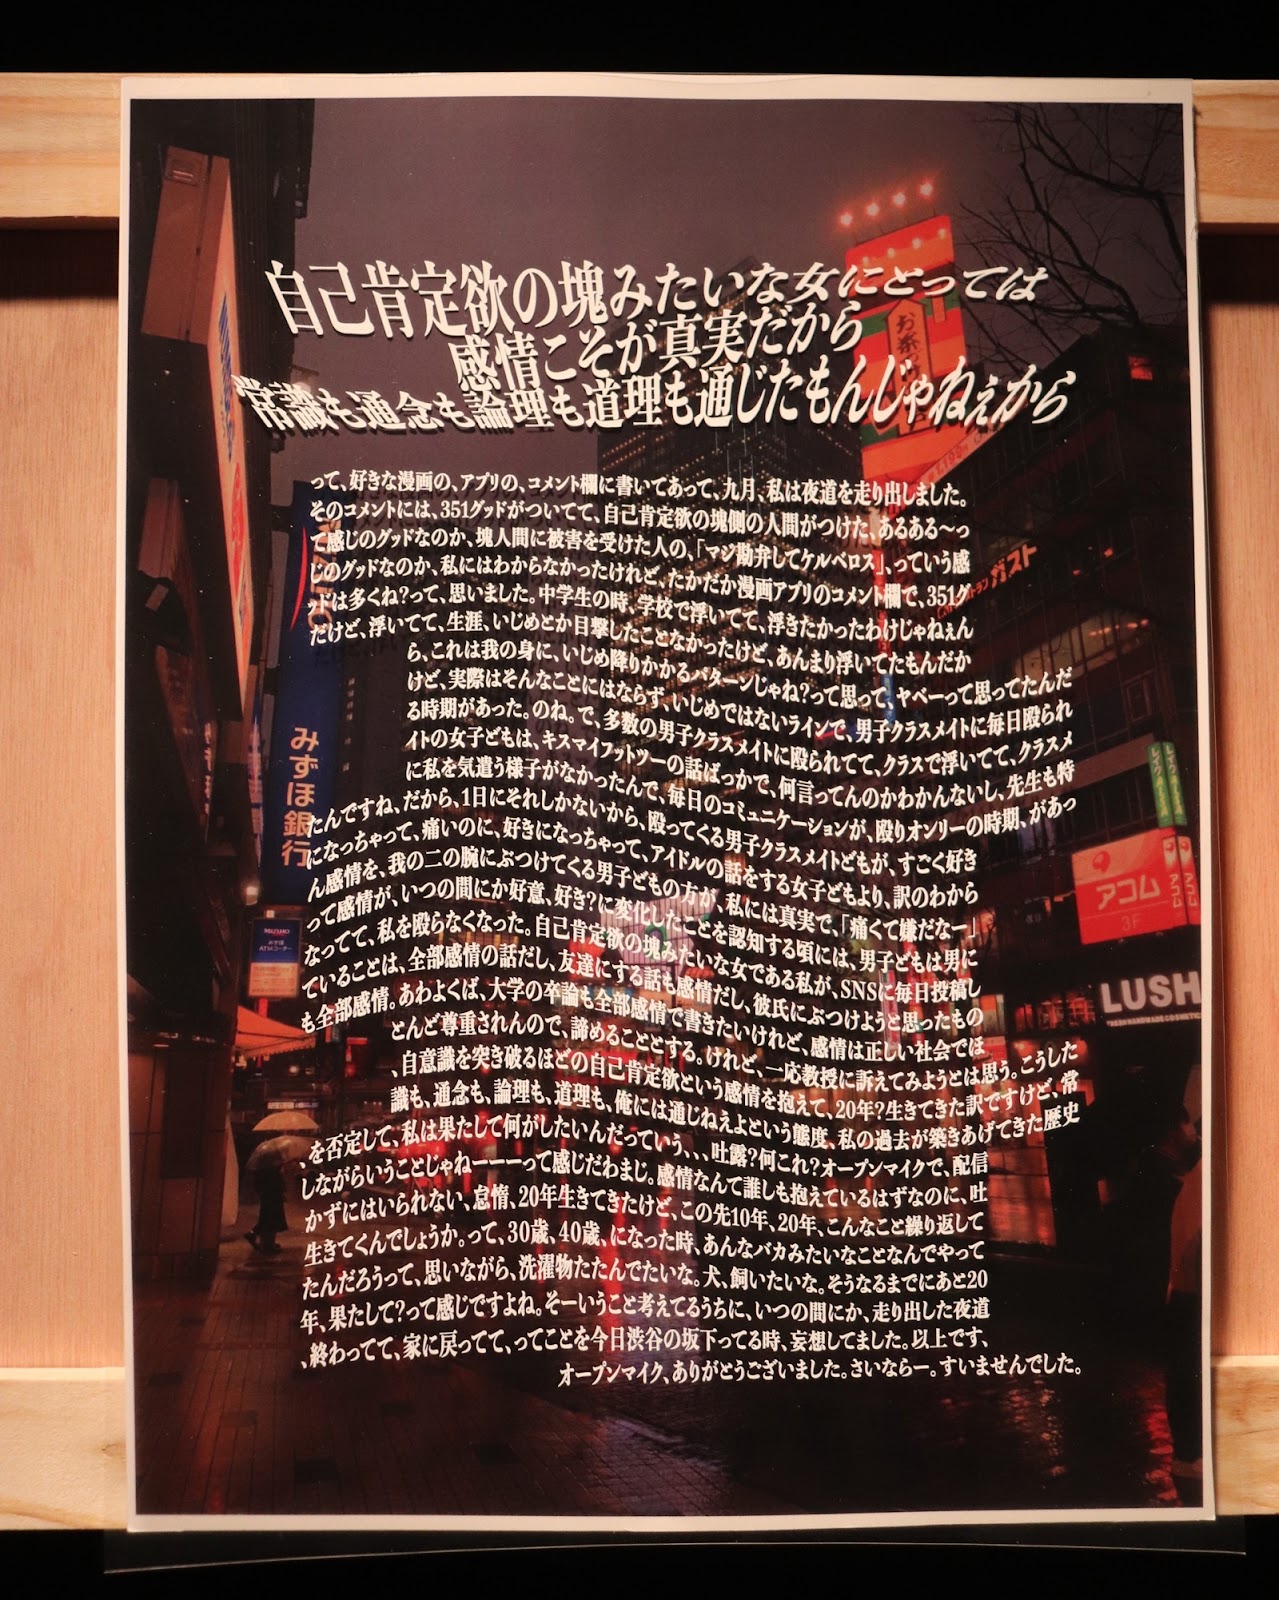 自己肯定欲の塊みたいな女にとっては
感情こそが真実だから
常識も通念も論理も道理も通じたもんじゃねぇから
って、好きな漫画の、アプリの、コメント欄に書いてあって、九月、私は夜道を走り出しました。
そのコメントには、351グッドがついてて、自己肯定欲の塊側の人間がつけた、あるある〜っ
て感じのグッドなのか、塊人間に被害を受けた人の、「マジ勘弁してケルベロス」、っていう感
じのグッドなのか、私にはわからなかったけれど、たかだか漫画アプリのコメント欄で、351グ
ッドは多くね?って、思いました。中学生の時、学校で浮いてて、浮きたかったわけじゃねぇん
だけど、浮いてて、生涯、いじめとか目撃したことなかったけど、あんまり浮いてたもんだか
ら、これは我の身に、いじめ降りかかるパターンじゃね?って思って、ヤベーって思ってたんだ
けど、実際はそんなことにはならず、いじめではないラインで、男子クラスメイトに毎日殴られ
る時期があった。のね。で、多数の男子クラスメイトに殴られてて、クラスで浮いてて、クラスメ
イトの女子どもは、キスマイフットツーの話ばっかで、何言ってんのかわかんないし、先生も特
に私を気遣う様子がなかったんで、毎日のコミュニケーションが、殴りオンリーの時期、があっ
たんですね、だから、1日にそれしかないから、殴ってくる男子クラスメイトどもが、すごく好き
になっちゃって、痛いのに、好きになっちゃって、アイドルの話をする女子どもより、訳のわから
ん感情を、我の二の腕にぶつけてくる男子どもの方が、私には真実で、「痛くて嫌だなー」
って感情が、いつの間にか好意、好き?に変化したことを認知する頃には、男子どもは男に
なってて、私を殴らなくなった。自己肯定欲の塊みたいな女である私が、SNSに毎日投稿し
ていることは、全部感情の話だし、友達にする話も感情だし、彼氏にぶつけようと思ったもの
も全部感情。あわよくば、大学の卒論も全部感情で書きたいけれど、感情は正しい社会でほ
とんど尊重されんので、諦めることとする。けれど、一応教授に訴えてみようとは思う。こうした
、自意識を突き破るほどの自己肯定欲という感情を抱えて、20年?生きてきた訳ですけど、常
識も、通念も、論理も、道理も、俺には通じねえよという態度、私の過去が築きあげてきた歴史
、を否定して、私は果たして何がしたいんだっていう、、、吐露?何これ?オープンマイクで、配信
しながらいうことじゃねーーーって感じだわまじ。感情なんて誰しも抱えているはずなのに、吐
かずにはいられない、怠惰、20年生きてきたけど、この先10年、20年、こんなこと繰り返して
生きてくんでしょうか。って、30歳、40歳、になった時、あんなバカみたいなことなんでやって
たんだろうって、思いながら、洗濯物たたんでたいな。犬、飼いたいな。そうなるまでにあと20
年、果たして?って感じですよね。そーいうこと考えてるうちに、いつの間にか、走り出した夜道
、終わってて、家に戻ってて、ってことを今日渋谷の坂下ってる時、妄想してました。以上です、
オープンマイク、ありがとうございました。さいならー。すいませんでした。
みずほ銀行
MIZUHO
みずほ
ATMコーナー
ガスト
レイク
アコム
3F
アコム
LUSH
FRESH HANDMADE COSMETICS